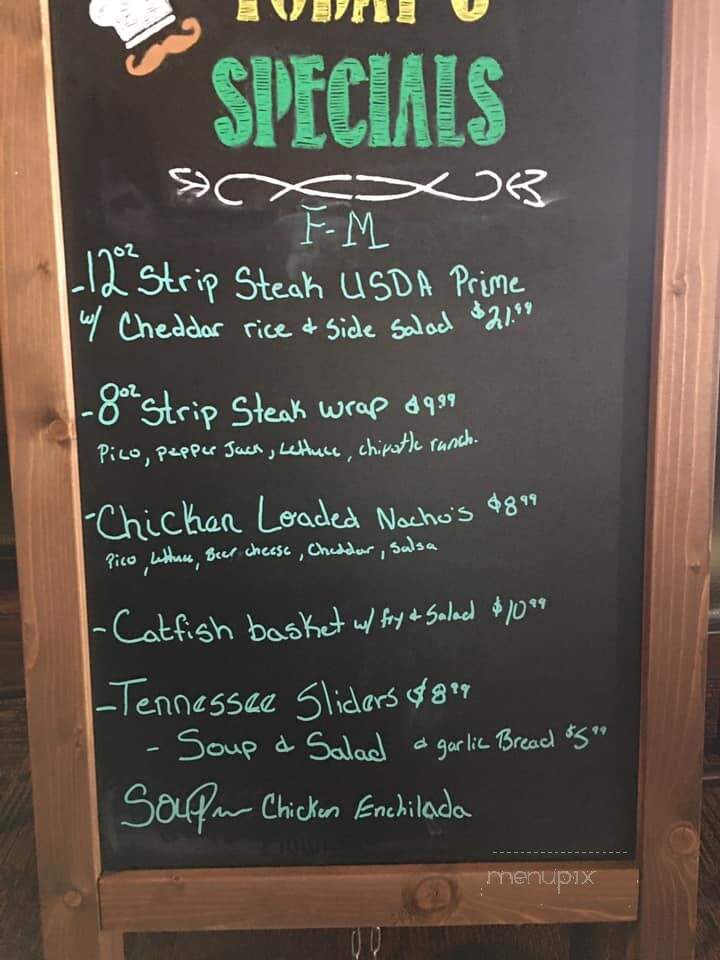 TODAY'S
SPECIALS
F-M
-12oz Strip Steak USDA Prime
w/ Cheddar rice & Side Salad $21.99
-8oz Strip Steak wrap $9.99
Pico, pepper Jack, Lettuce, chipotle ranch.
-Chicken Loaded Nacho's $8.99
Pico, Lettuce, Beer cheese, Cheddar, Salsa
-Catfish basket w/ fry & Salad $10.99
-Tennessee Sliders $8.99
- Soup & Salad & garlic Bread $5.99
Soup~ Chicken Enchilada
menupix